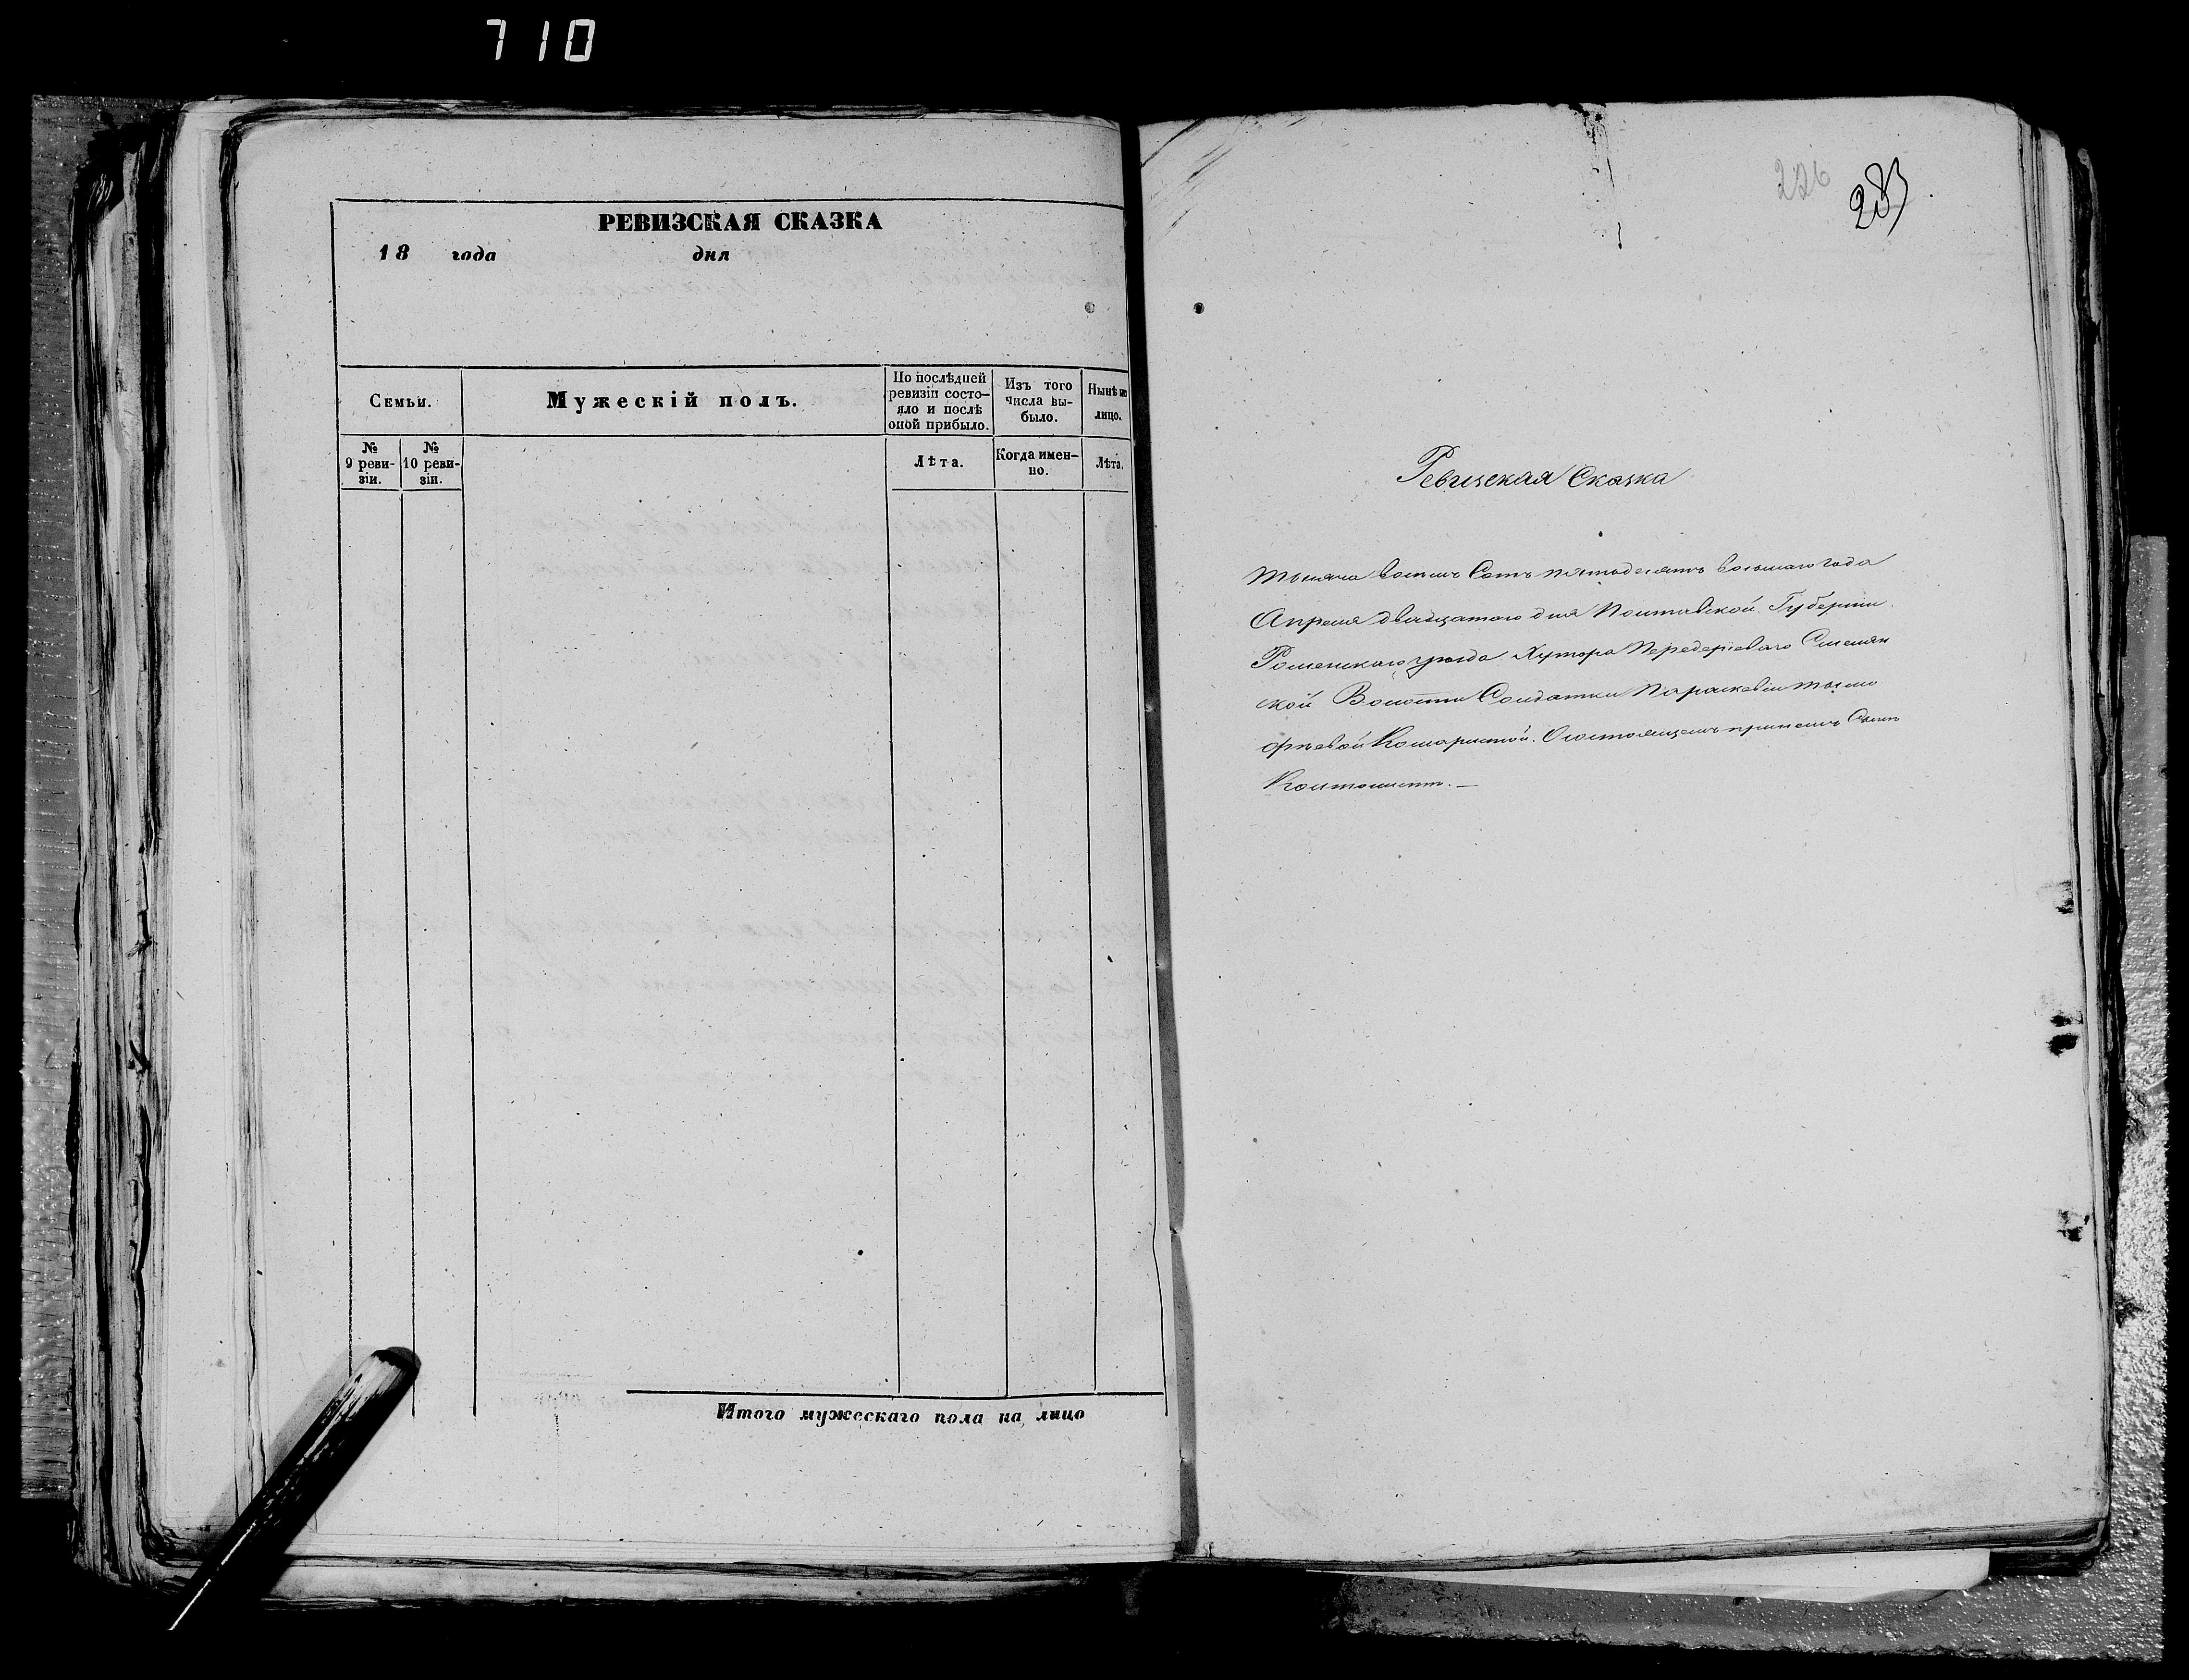 710
РЕВИЗСКАЯ СКАЗКА
18 года дня
Семьи.
Мужескій полъ.
По послѣдней
ревизіи состо-
яло и послѣ
оной прибыло.
Изъ того
числа вы-
было.
Нынѣ на
лицо.
№
9 реви-
зіи.
№
10 реви-
зіи.
Лѣта.
Когда имен-
но.
Лѣта.
Итого мужескаго пола на лицо
226
Ревизская Сказка
Тысяча восемь Сотъ пятьдесятъ восьмаго года
Апреля двадцатого дня Полтавской Губерніи
Роменскаго уезда Хутора Передеріеваго Смелян
ской Волости Солдатки Параскевіи Тимо
фѣевой Состоящемъ принемъ Сынъ